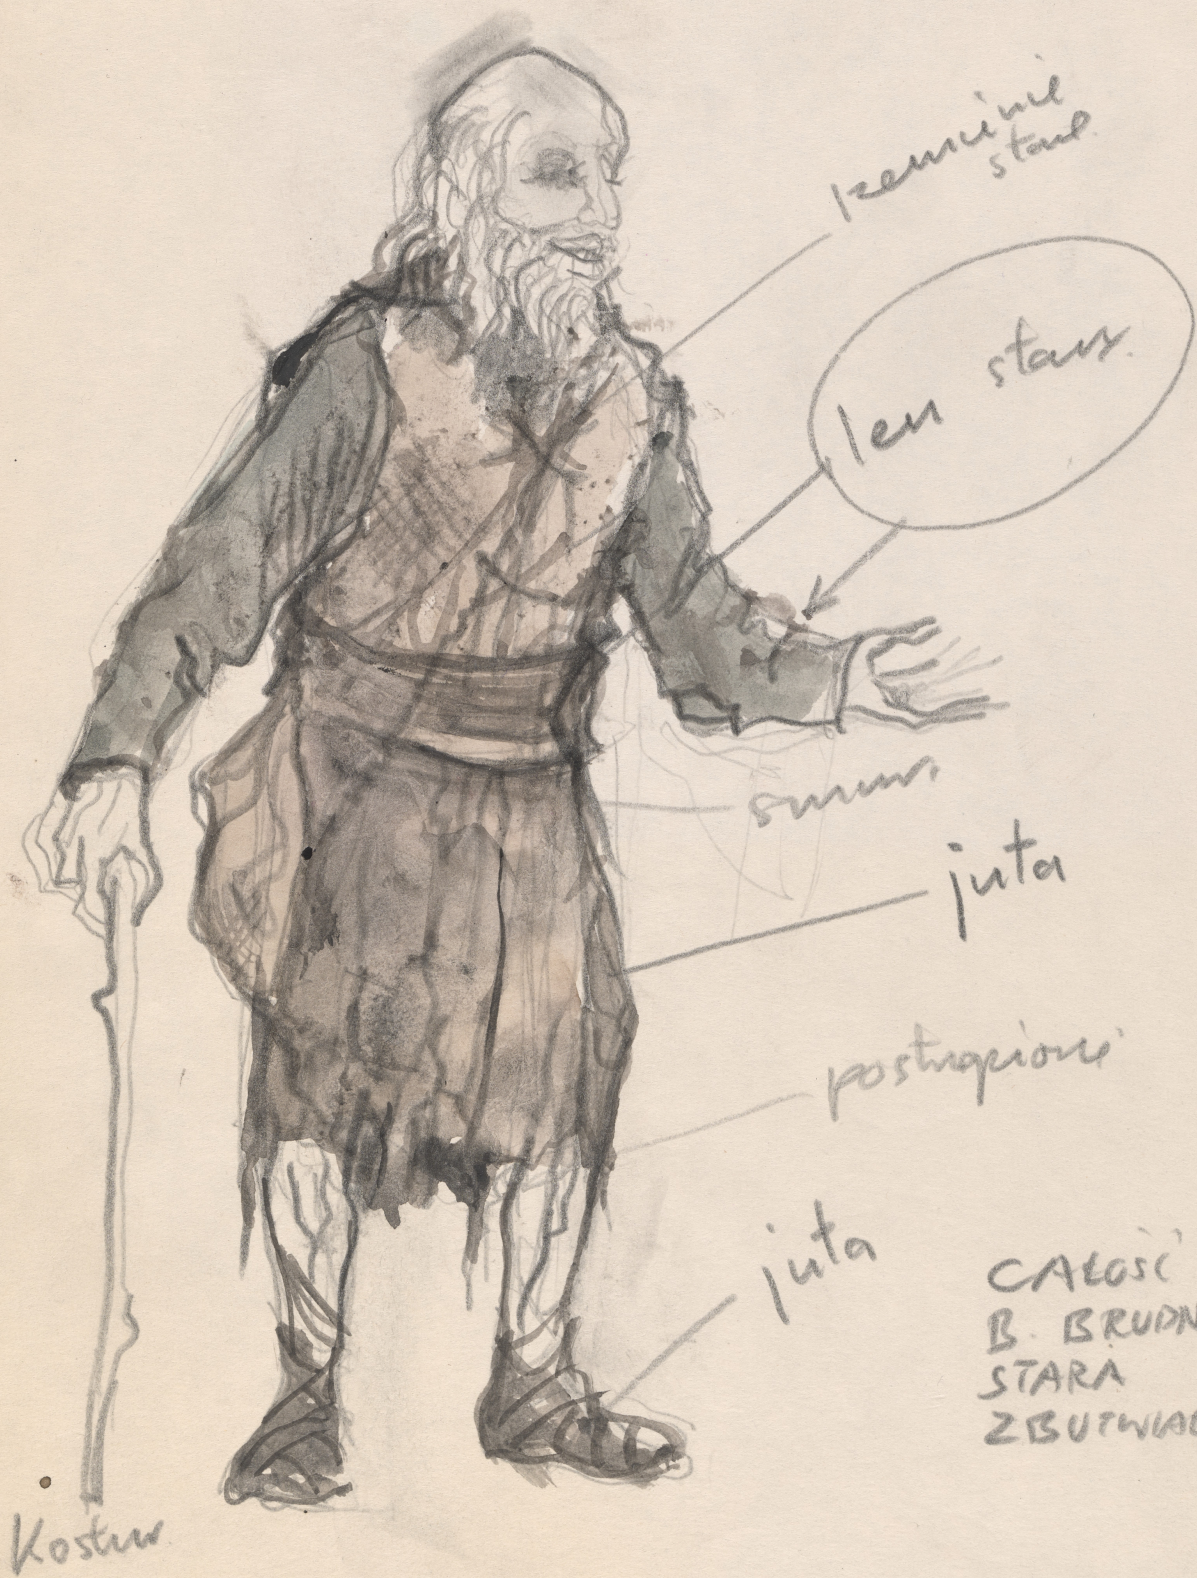 rzemienie
stare
len stary
juta
postrzępione
juta
CAŁOŚĆ
B. BRUDN
STARA
ZBUTWIAŁ
Kostur